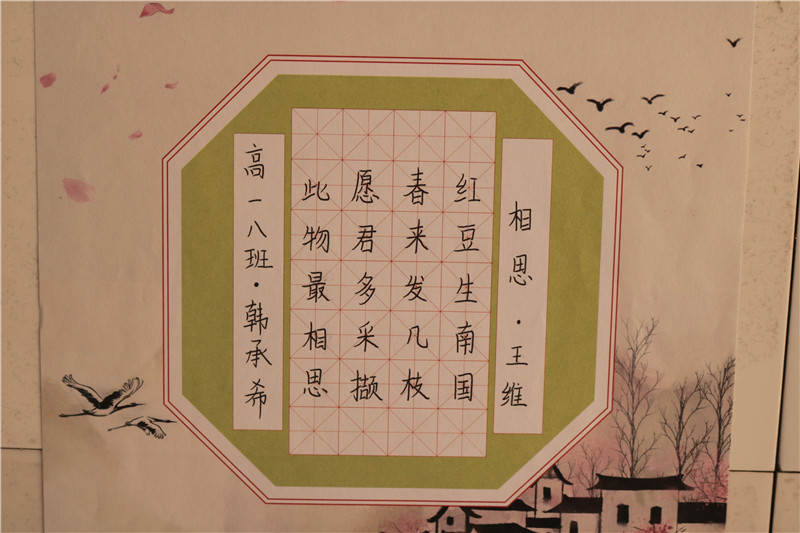 相思·王维
红豆生南国
春来发几枝
愿君多采撷
此物最相思
高一八班·韩承希